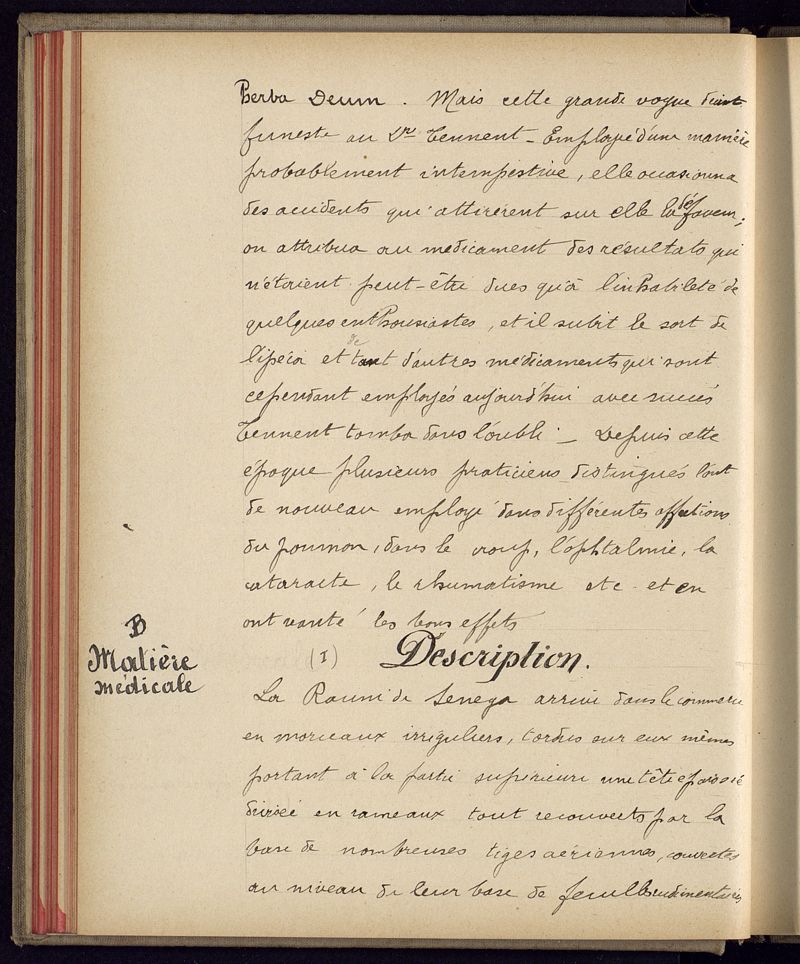 Herba Deum. Mais cette grande vogue devint
funeste au Dr Tennent - Employé d'une manière
probablement intempestive, elle occasionna
des accidents qui attirèrent sur elle la défaveur;
on attribua au médicament des résultats qui
n'étaient peut-être dues qu'à l'inhabileté de
quelques enthousiastes, et il subit le sort de
l'ipéca et de tant d'autres médicaments qui sont
cependant employés aujourd'hui avec succès
Tennent tomba dans l'oubli - Depuis cette
époque plusieurs praticiens distingués l'ont
de nouveau employé dans différentes affections
du poumon, dans le croup, l'ophtalmie, la
cataracte, le rhumatisme etc. et en
ont vanté les bons effets
B
Matière
médicale
(I) Description.
La Racine de Senega arrive dans le commerce
en morceaux irréguliers, tordus sur eux mêmes
portant à la partie supérieure une tête épaisse
divisée en rameaux tout recouverts par la
base de nombreuses tiges aériennes, couvertes
au niveau de leur base de feuilles rudimentaires